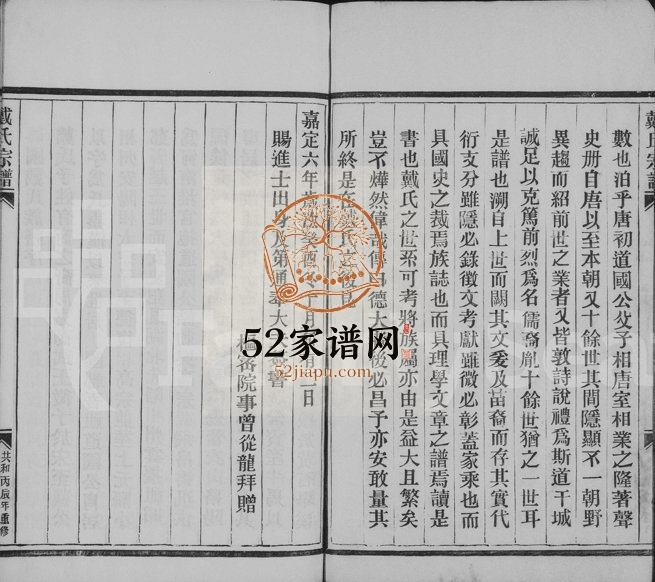 戴氏宗譜
數也泊乎唐初道國公父子相唐室相業之隆著聲
史册自唐以至本朝又十餘世其間隱顯不一朝野
異趨而紹前世之業者又皆敦詩說禮爲斯道干城
誠足以克篤前烈爲名儒裔胤十餘世猶之一世耳
是譜也溯自上世而關其文爰及苗裔而存其實代
衍支分雖隱必錄徵文考獻雖微必彰蓋家乘也而
具國史之裁焉族誌也而具理學文章之譜焉讀是
書也戴氏之世系可考將族屬亦由是益大且繁矣
豈不燁然偉哉傳曰德大後必昌予亦安敢量其
所終是在戴氏之後
嘉定六年歲次癸酉冬十月
賜進士出身及第通奉大夫
樞密院事曾從龍拜贈
戴氏宗譜
共和丙辰年重修
52家谱网
52jiapu.com